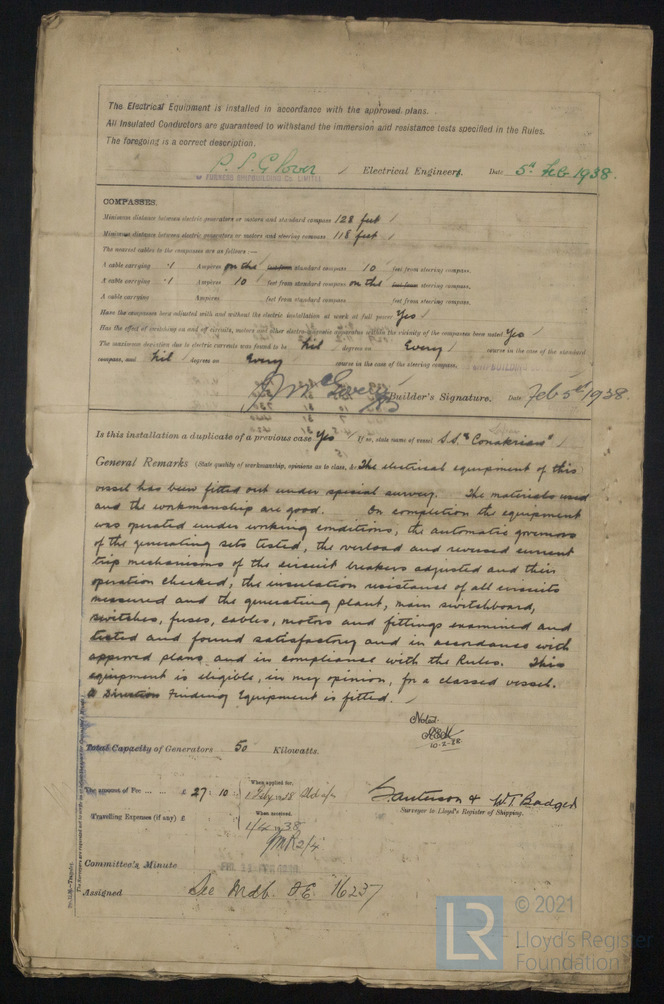 The Electrical Equipment is installed in accordance with the approved plans.
All Insulated Conductors are guaranteed to withstand the immersion and resistance tests specified in the Rules.
The foregoing is a correct description.
P. S. Glover Electrical Engineers. Date 5th Feb 1938.
FURNESS SHIPBUILDING CO. LIMITED
COMPASSES.
Minimum distance between electric generators or motors and standard compass 128 feet
Minimum distance between electric generators or motors and steering compass 118 feet
The nearest cables to the compasses are as follows:—
A cable carrying .1 Amperes on the standard compass 10 feet from steering compass.
A cable carrying .1 Amperes 10 feet from standard compass on the steering compass.
A cable carrying Amperes feet from standard compass feet from steering compass.
Have the compasses been adjusted with and without the electric installation at work at full power Yes
Has the effect of switching on and off circuits, motors and other electro-magnetic apparatus within the vicinity of the compasses been noted Yes
The maximum deviation due to electric currents was found to be Nil degrees on Every course in the case of the standard
compass, and Nil degrees on Every course in the case of the steering compass.
Builder's Signature. Date Feb 5th 1938
Is this installation a duplicate of a previous case Yes If so, state name of vessel S.S. "Conakrian"
General Remarks (State quality of workmanship, opinions as to class, &c. The electrical equipment of this
vessel has been fitted out under special survey. The materials used
and the workmanship are good. On completion the equipment
was operated under working conditions, the automatic governors
of the generating sets tested, the overload and reversed current
trip mechanisms of the circuit breakers adjusted and their
operation checked, the insulation resistance of all circuits
measured and the generating plant, main switchboard,
switches, fuses, cables, motors and fittings examined and
tested and found satisfactory and in accordance with
approved plans and in compliance with the Rules. This
equipment is eligible, in my opinion, for a classed vessel.
A Direction Finding Equipment is fitted.
Noted
10.2.38
Total Capacity of Generators 50 Kilowatts.
The amount of Fee ... ... £ 27 : 10 : When applied for,
Travelling Expenses (if any) £ When received,
W T Badger
Surveyor to Lloyd's Register of Shipping.
Committee's Minute FRI 11 FEB 1938
Assigned See Mdb. F.E. 16237
© 2021
LR
Lloyd's Register
Foundation